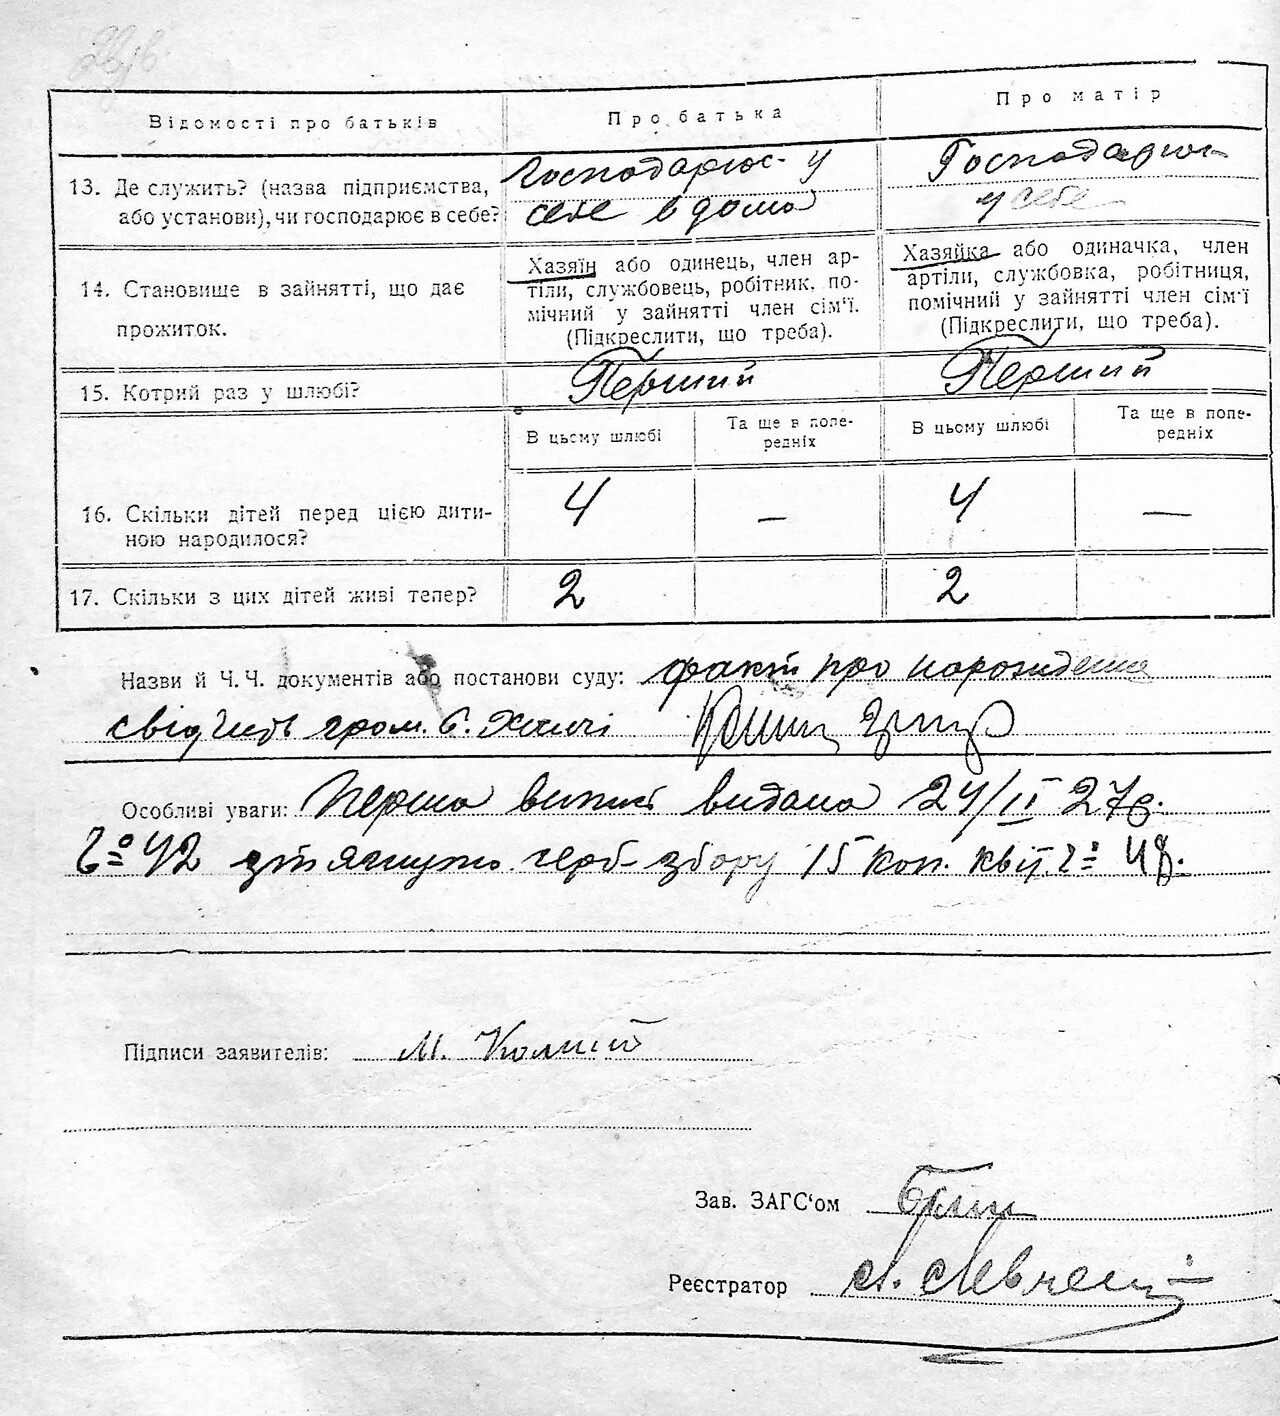 Відомості про батьків
Про батька
Про матір
13. Де служить? (назва підприємства,
або установи), чи господарює в себе?
Господарює у
себе в дома
Господарює
у себе
14. Становище в зайнятті, що дає
прожиток.
Хазяїн або одинець, член ар-
тіли, службовець, робітник, по-
мічний у зайнятті член сім'ї.
(Підкреслити, що треба).
Хазяйка або одиначка, член
артіли, службовка, робітниця,
помічний у зайнятті член сім'ї
(Підкреслити, що треба).
15. Котрий раз у шлюбі?
Перший
Перший
В цьому шлюбі
Та ще в попе-
редніх
В цьому шлюбі
Та ще в попе-
редніх
16. Скільки дітей перед цією дити-
ною народилося?
4
—
4
—
17. Скільки з цих дітей живі тепер?
2
2
Назви й Ч. Ч. документів або постанови суду: факт про народження
свідчить гром. с.
Особливі уваги: Перша випись видана 24/II 27р.
№ 42 стягнуто герб збору 15 коп. квіт. № 48.
Підписи заявителів: М.
Зав. ЗАГС'ом
Реєстратор